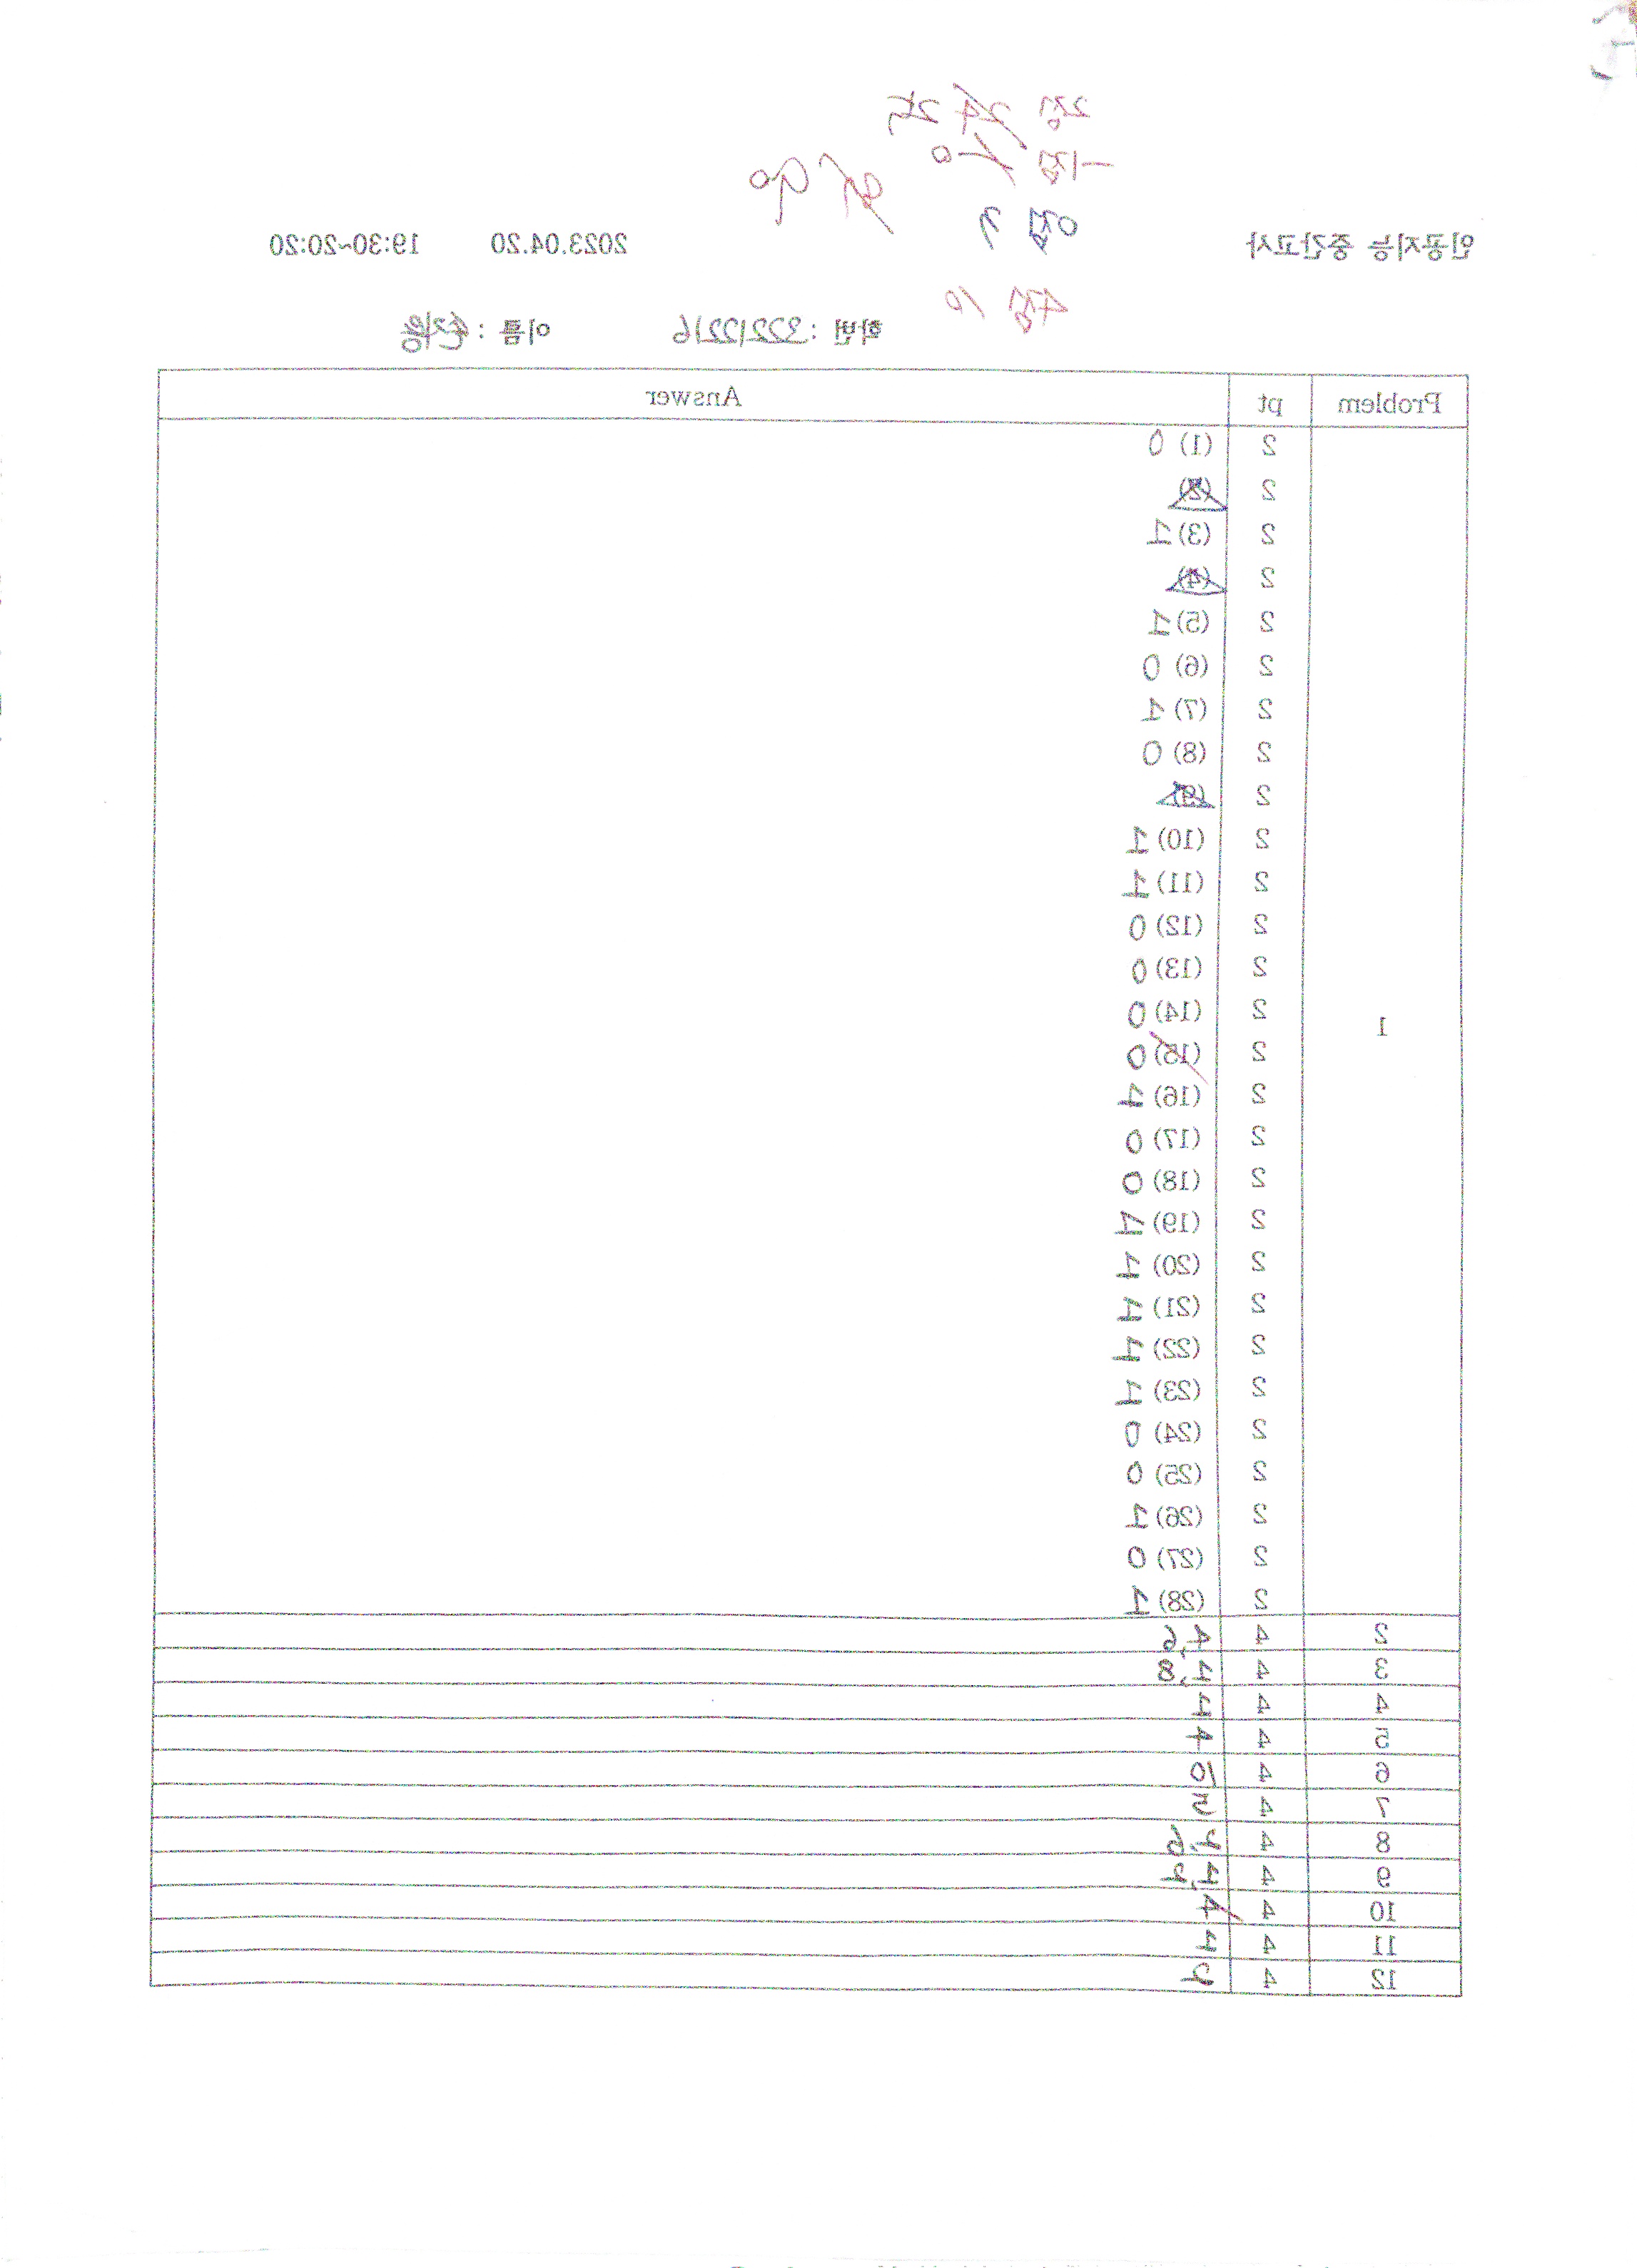 2점 24 25
-1점 1 0
0점 2
90
인공지능 중간고사 2023.04.20 19:30~20:20
4점 10
학번 : 32212216 이름 :
Problem pt Answer
1
2 (1) 0
2 (2)
2 (3) 1
2 (4)
2 (5) 1
2 (6) 0
2 (7) 1
2 (8) 0
2 (9)
2 (10) 1
2 (11) 1
2 (12) 0
2 (13) 0
2 (14) 0
2 (15) 0
2 (16) 1
2 (17) 0
2 (18) 0
2 (19) 1
2 (20) 1
2 (21) 1
2 (22) 1
2 (23) 1
2 (24) 0
2 (25) 0
2 (26) 1
2 (27) 0
2 (28) 1
2 4 1,6
3 4 1,8
4 4 1
5 4 4
6 4 10
7 4 3
8 4 2,6
9 4 1,2
10 4 4
11 4 1
12 4 2